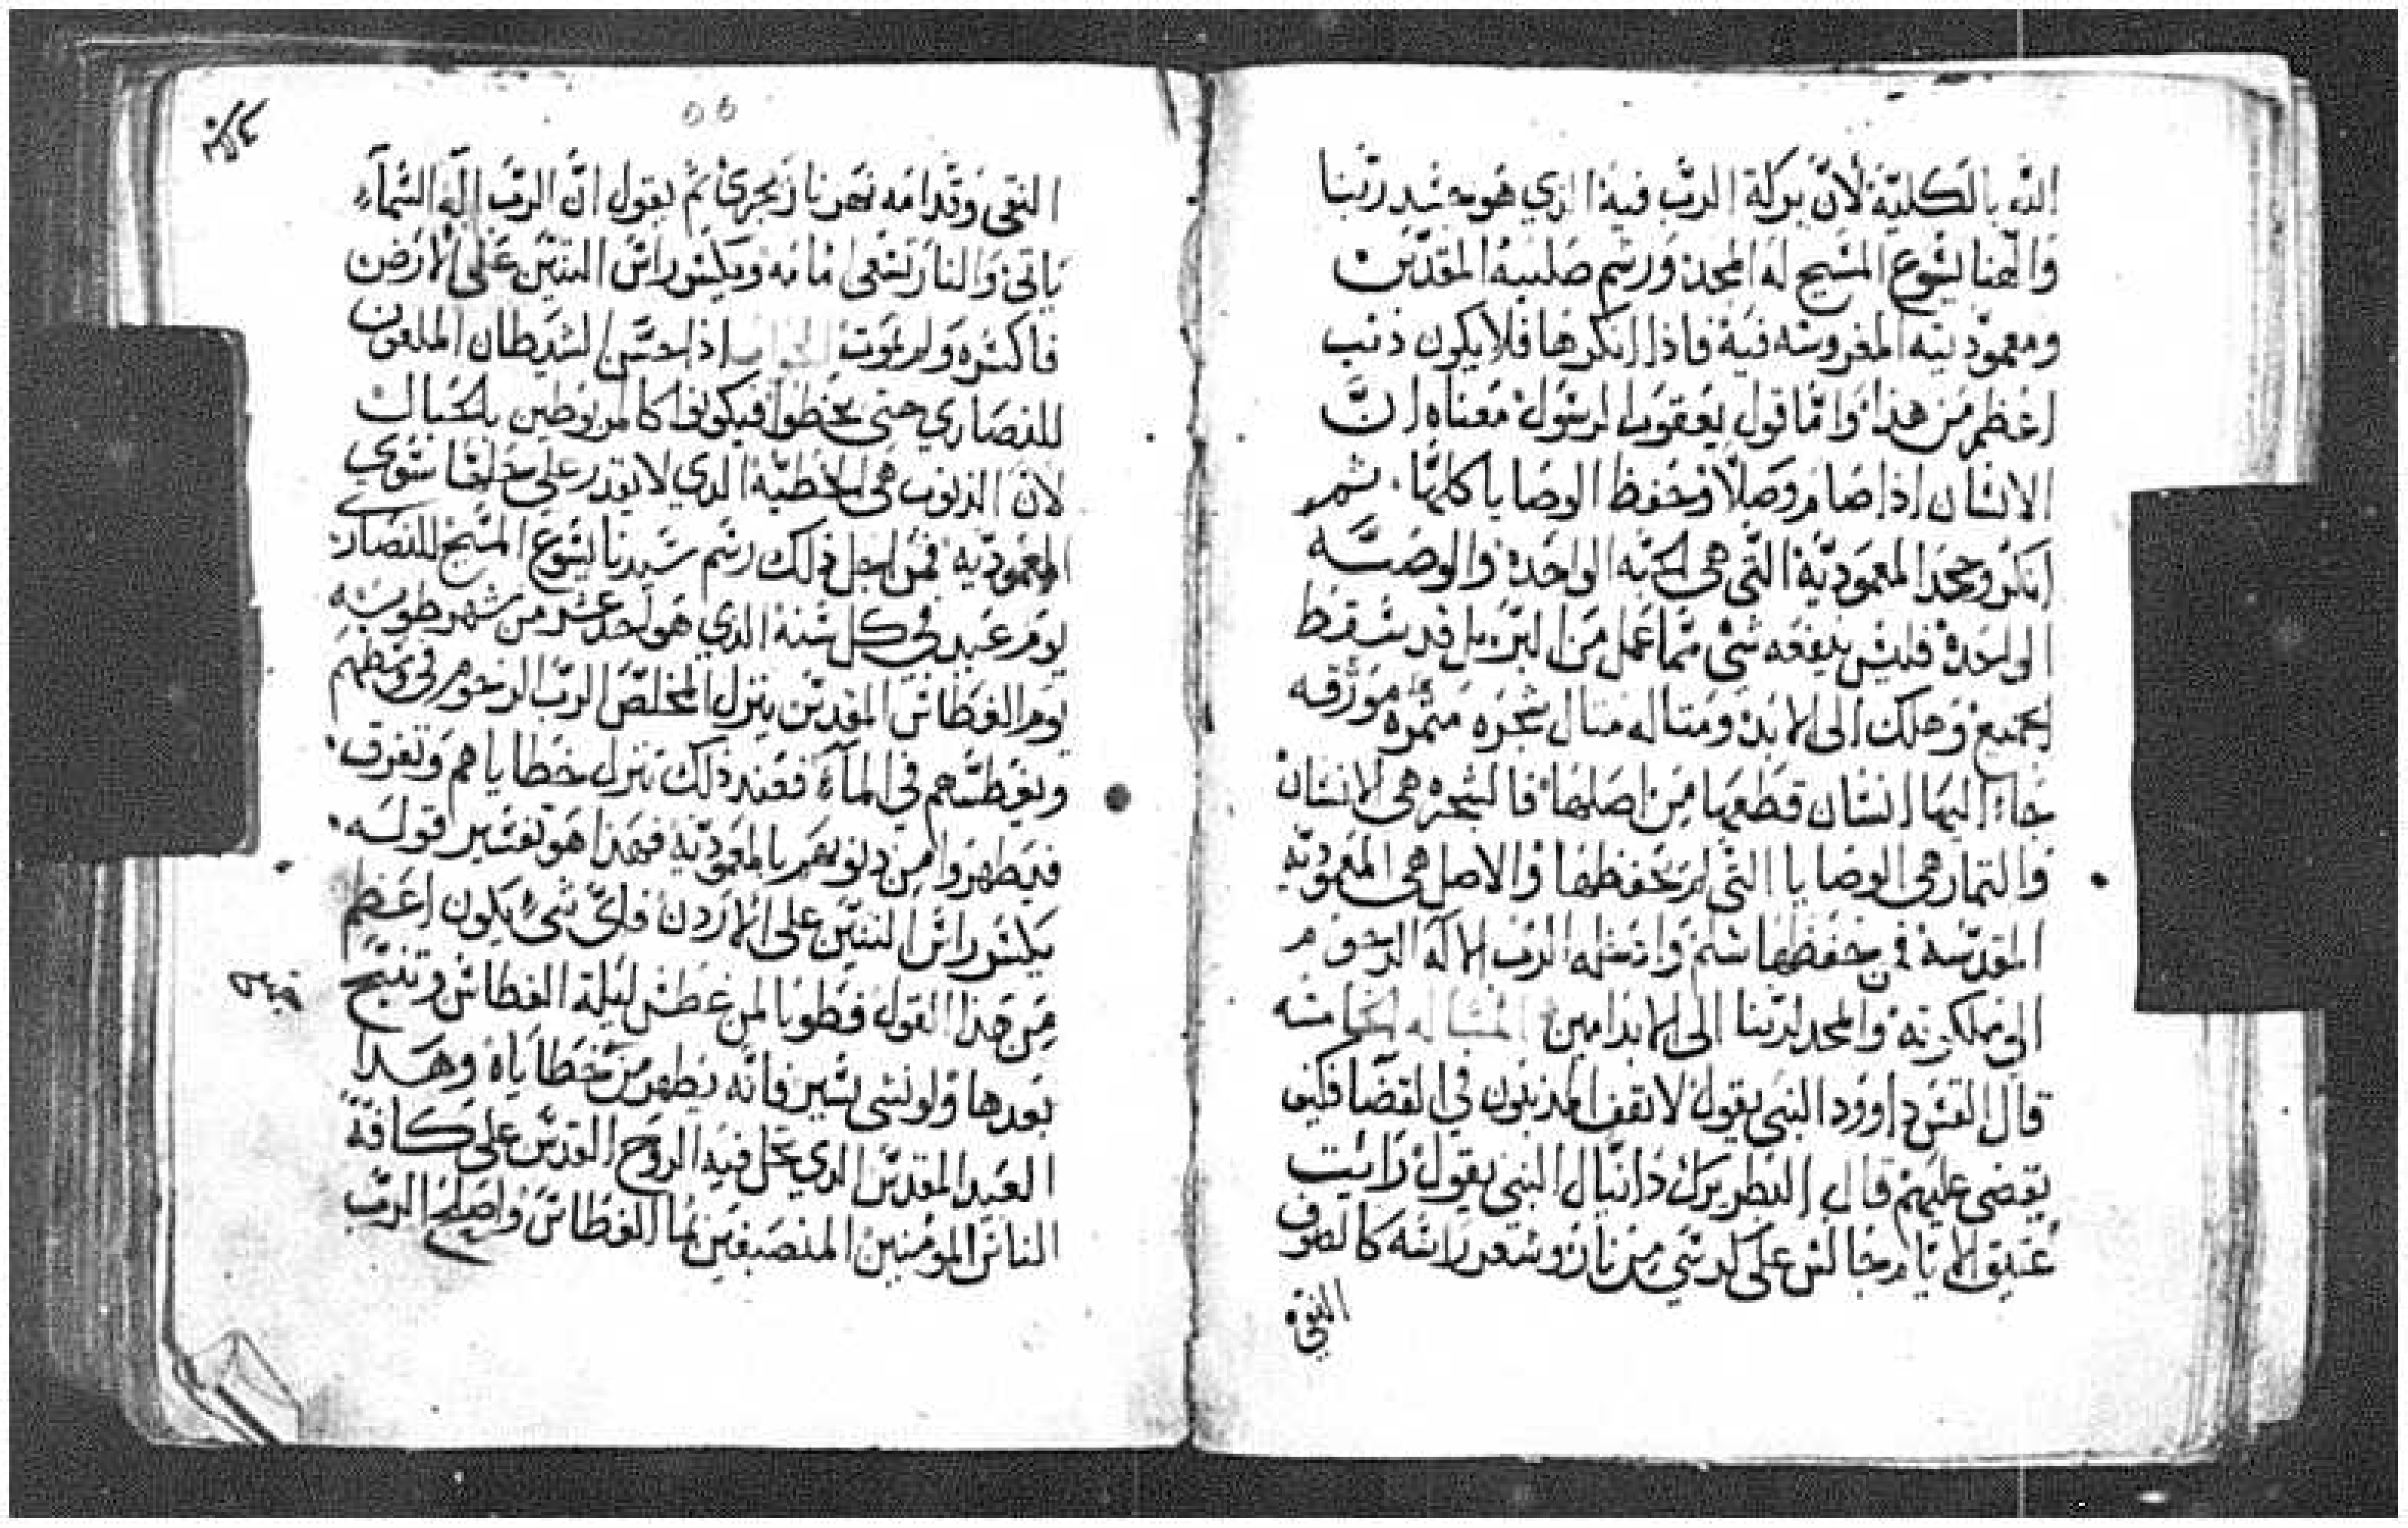 الله بالكليّة لأنّ بركة الربّ فيه الذي هو جسد ربّنا
وَالهنا يسُوع المسَيح لهَ المجد وَرشم صَليبهُ المقدّسَ
ومعموديته المغروسَه فيَهْ فاذا انكرها فلا يكون ذنب
اعَظم مَن هذا وَامّا قول يَعقوب الرسُول معَناه انّ
الانسَان اذا صَام وَصَلّا وَحَفظ الوصَايا كلهّا. ثم
انكر وجحد المعَموديّة التّي هي الواحَدة والوصَيَّه
الواحدة فليسَ ينفعَه شى ممّا عَمل مَن البرّ بل قد سَقط
الجمَيع وَهلك الى الابدْ ومتاله متال شجَره متمَره مَوَرّقه
جَاءِ اليها انسَان قطَعها مِنَ اصَلهَا فالشجره هي الانسَانْ
وَالتمار هي الوصَايا التّى لم يَحفظهَا وَالاصل هي المعَموديّه
المقدّسَة فمن حَفظها سَلمْ وَ الربّ الالَه الرحَوم
الى ملكوته وَالمجد لربّنا الى الابد امين المسَاله الخامسَه
قال القسّ داوود النبّي يقول لا تقف المذنبون في القضَا فكيف
يقضى عليهمْ قال البَطريرك دَانيال النبي يقولْ رَايَت
عَتيق الايّام جَالسْ على كرسَي من نارْ وشعر رَاسَه كَالصوف
النقي
النقى وَقدامَه نهَر نارْ يَجرىْ ثم يقول انّ الربّ الَه السّمآءِ
يَاتى وَالنار تسَعى امَامه ويكسر راسَ التنيّن عَلى الارَضْ
فاكسَره وَلم يَموت الجواب اذا حسَّ الشيطان الملعون
للنصَارى حتى يخطوا فيكونوا كالمربوطين بالحبَال
لانّ الذنوب هي الخطيّه الذي لا يقدر على سَوى
المعَموديّه فمن اجل ذلك رسَم سَيدنا يسَوع المسَيح للنصَارى
يومَ عَيد في كل سَنة الذي هوَ احد عشر من شهر طوبَه
يومَ الغطَاسَ المقدسّ ينزل المخلصَ الربّ الرحَوم في وسَطهم
ويغطسَهم في المآءَ فعَند ذلك تنزل خطَاياهم وَتغرق.
فيَطهروا من دنوبهَم بالمعَموديّة فهذا هوَ تفسَير قولَه.
يَكسر راسَ التنيّن على الاردن فاىّ شىْ يكون اعَظم
مَن هَذا القول فطَوبَا لمن غطس ليلة الغطاسَ وتنيّح
بَعدها وَلو نسَى يسَير فانّه يَطهر مَن خطَايَاهْ وهَدا
العَيد المقدسّ الدي يحَل فيه الروَح القدسّ على كَافة
الناسَ المومنين المنصَبغين بما الغطَاسَ وَاصَلح الربّ